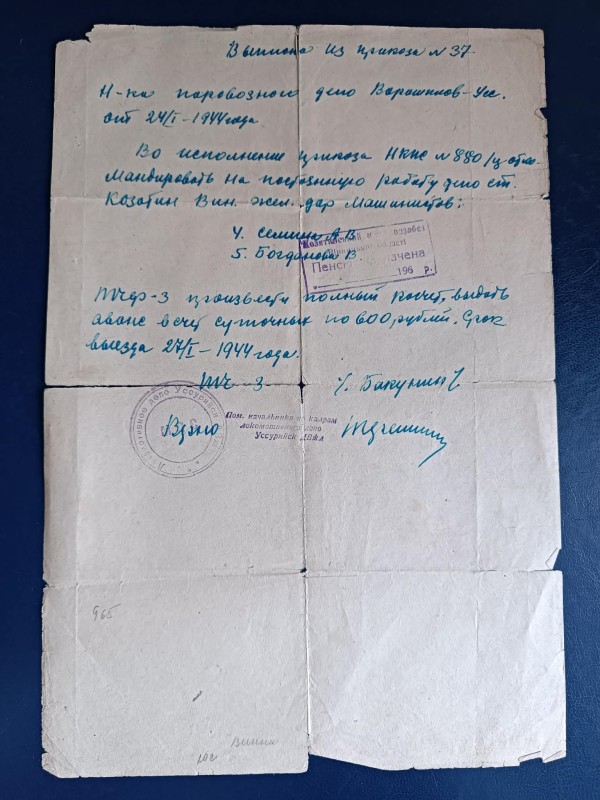 Выписка из приказа N 37
Н-ка паровозного депо Ворошилов-Усс.
от 24/I-1944 года.
Во исполнение приказа НКПС N 880/ц отко-
мандировать на постоянную работу депо ст.
Козатин Вин. жел. дор Машинистов:
4. Семина А.В.
5. Богданова В.
Пенс
196 р.
ТЧФ-3 произвести полный расчет, выдать
аванс в счет суточных по 600 рублей. Срок
выезда 27/I-1944 года.
ТЧ-3
Верно
Пом. начальника по кадрам
локомотивного депо
Уссурийск ДВжд
локомотивное депо Уссурийск
965